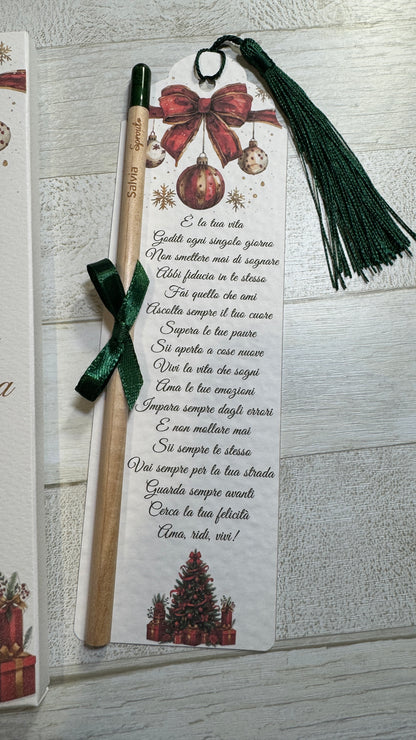 È la tua vita
Goditi ogni singolo giorno
Non smettere mai di sognare
Abbi fiducia in te stesso
Fai quello che ami
Ascolta sempre il tuo cuore
Supera le tue paure
Sii aperto a cose nuove
Vivi la vita che sogni
Ama le tue emozioni
Impara sempre dagli errori
E non mollare mai
Sii sempre te stesso
Vai sempre per la tua strada
Guarda sempre avanti
Cerca la tua felicità
Ama, ridi, vivi!
Salvia Sprout
a